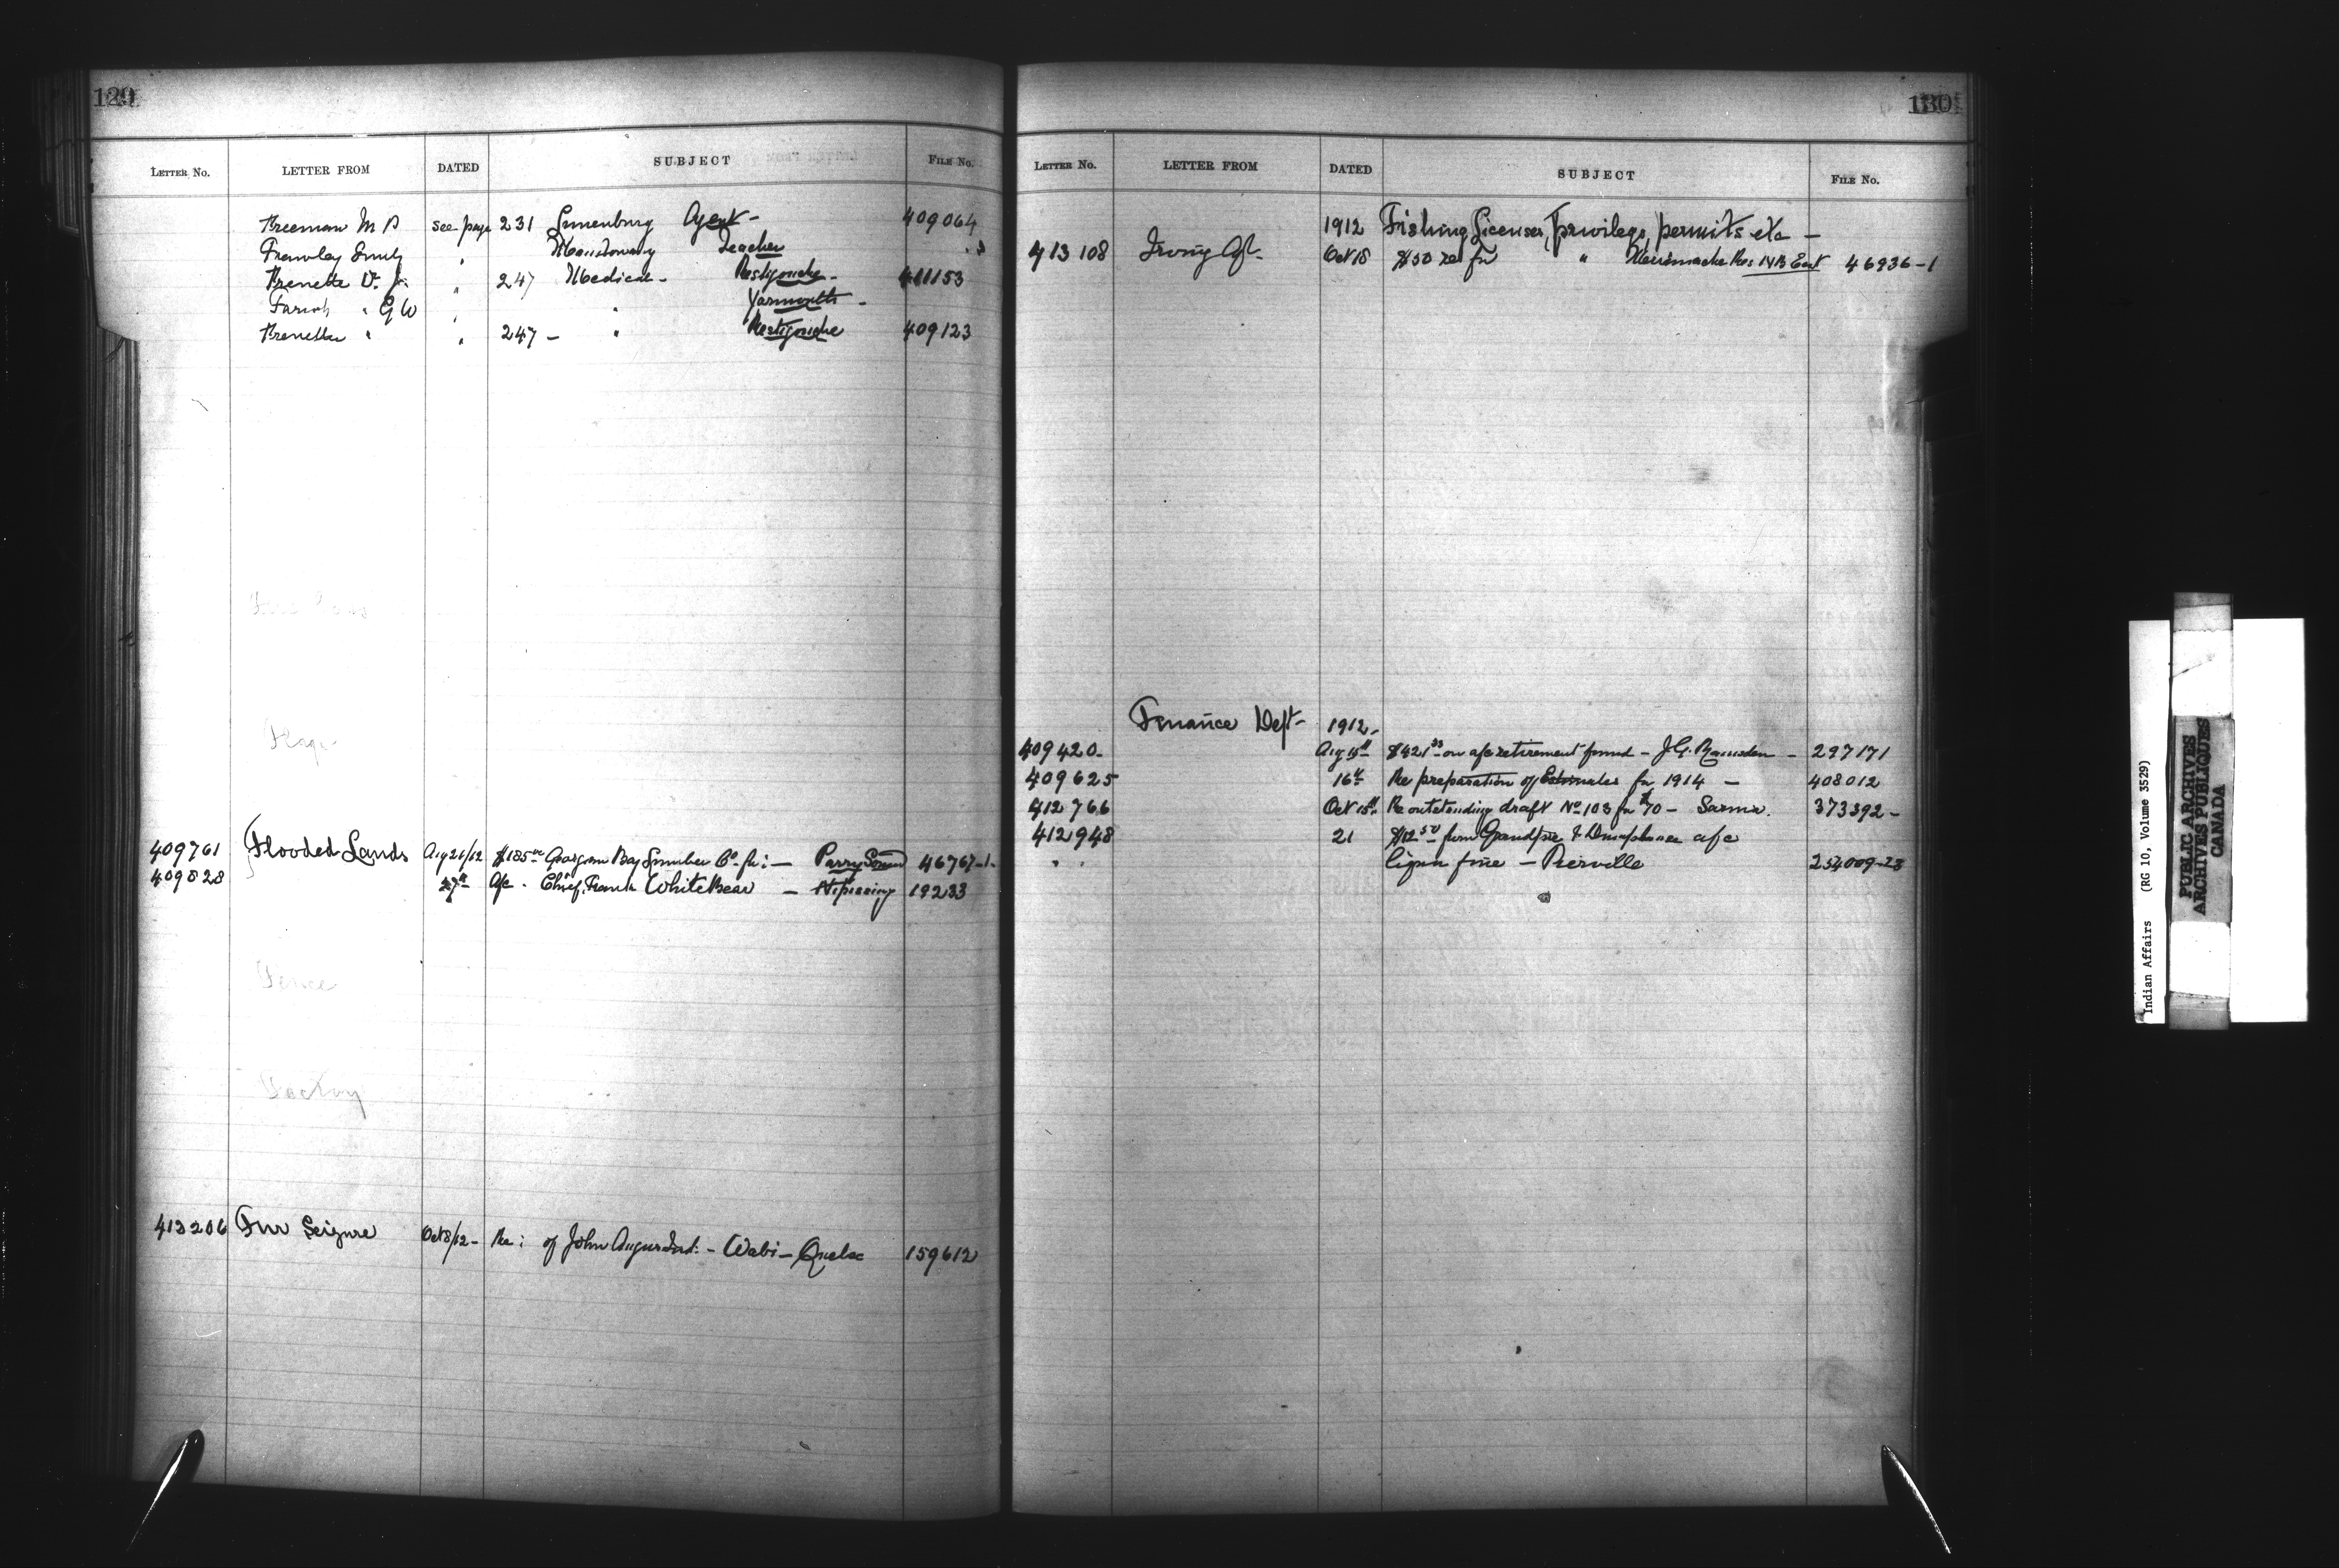 129
LETTER No. LETTER FROM DATED SUBJECT FILE No.
Freeman M D see page 231 Lunenburg Agent - 409064
Frawley Emily " Teacher "
" 247 Medical - Restigouche - 411153
Farish " G W " " Yarmouth -
" " 247 - " Restigouche 409123
Flags
409761 Flooded Lands Aug 21/12 $185 Georgian Bay Lumber Co. for: - Parry Sound 46767-1-
409828 27th a/c - Chief Frank White Bear - Nipissing 19233
Fence
Factory
413206 Fur Seizure Oct 8/12 - Re: of John - Wabi - Quebec 159612
130
LETTER No. LETTER FROM DATED SUBJECT FILE No.
1912 Fishing Licenses, privilege, permits etc -
413108 Irving Agt - Oct 18 $50 re for " 46936-1
Finance Dept - 1912 -
409420 - Aug 15th $421 on a/c retirement fund - J.G. Ramsden - 297171
409625 16th Re preparation of Estimates for 1914 - 408012
412766 Oct 15th Re outstanding draft No 103 for $70 - Sarnia. 373392 -
412948 21 $12 50 from Grandpre & a/c
" " liquor fine - Pierreville 254009-23
Indian Affairs (RG 10, Volume 3529)
PUBLIC ARCHIVES
ARCHIVES PUBLIQUES
CANADA